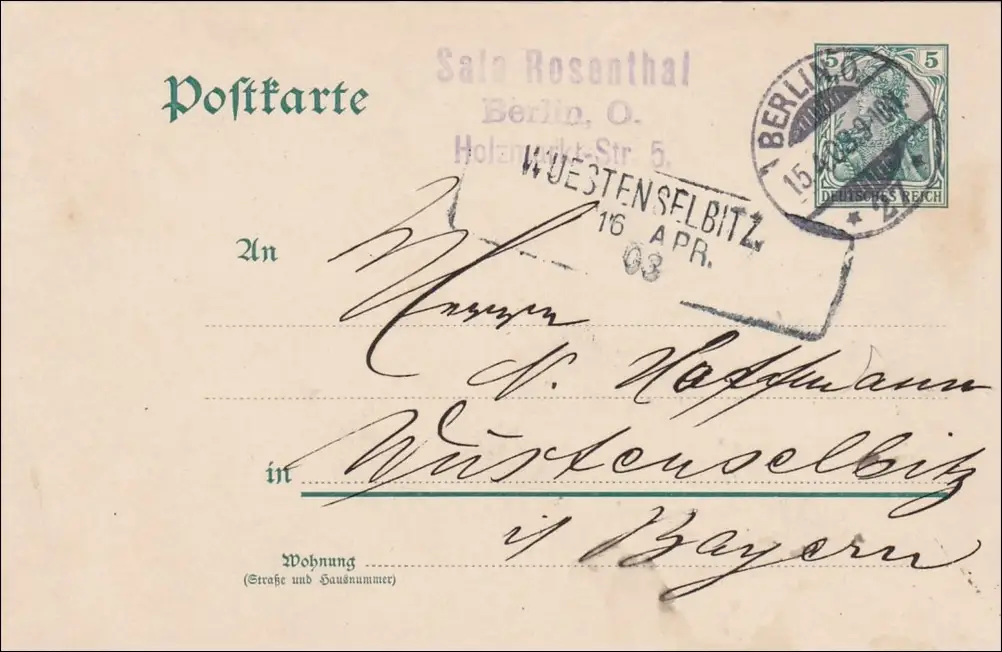 Postkarte
Sala Rosenthal
Berlin, O.
Holzmarkt-Str. 5.
BERLIN, O.
15.4.03.9-10V.
* 27 *
5 5
DEUTSCHES REICH
WUESTENSELBITZ.
16 APR.
03
An
Herrn
N. Hoffmann
in Wüstenselbitz
i/ Bayern
Wohnung
(Straße und Hausnummer)